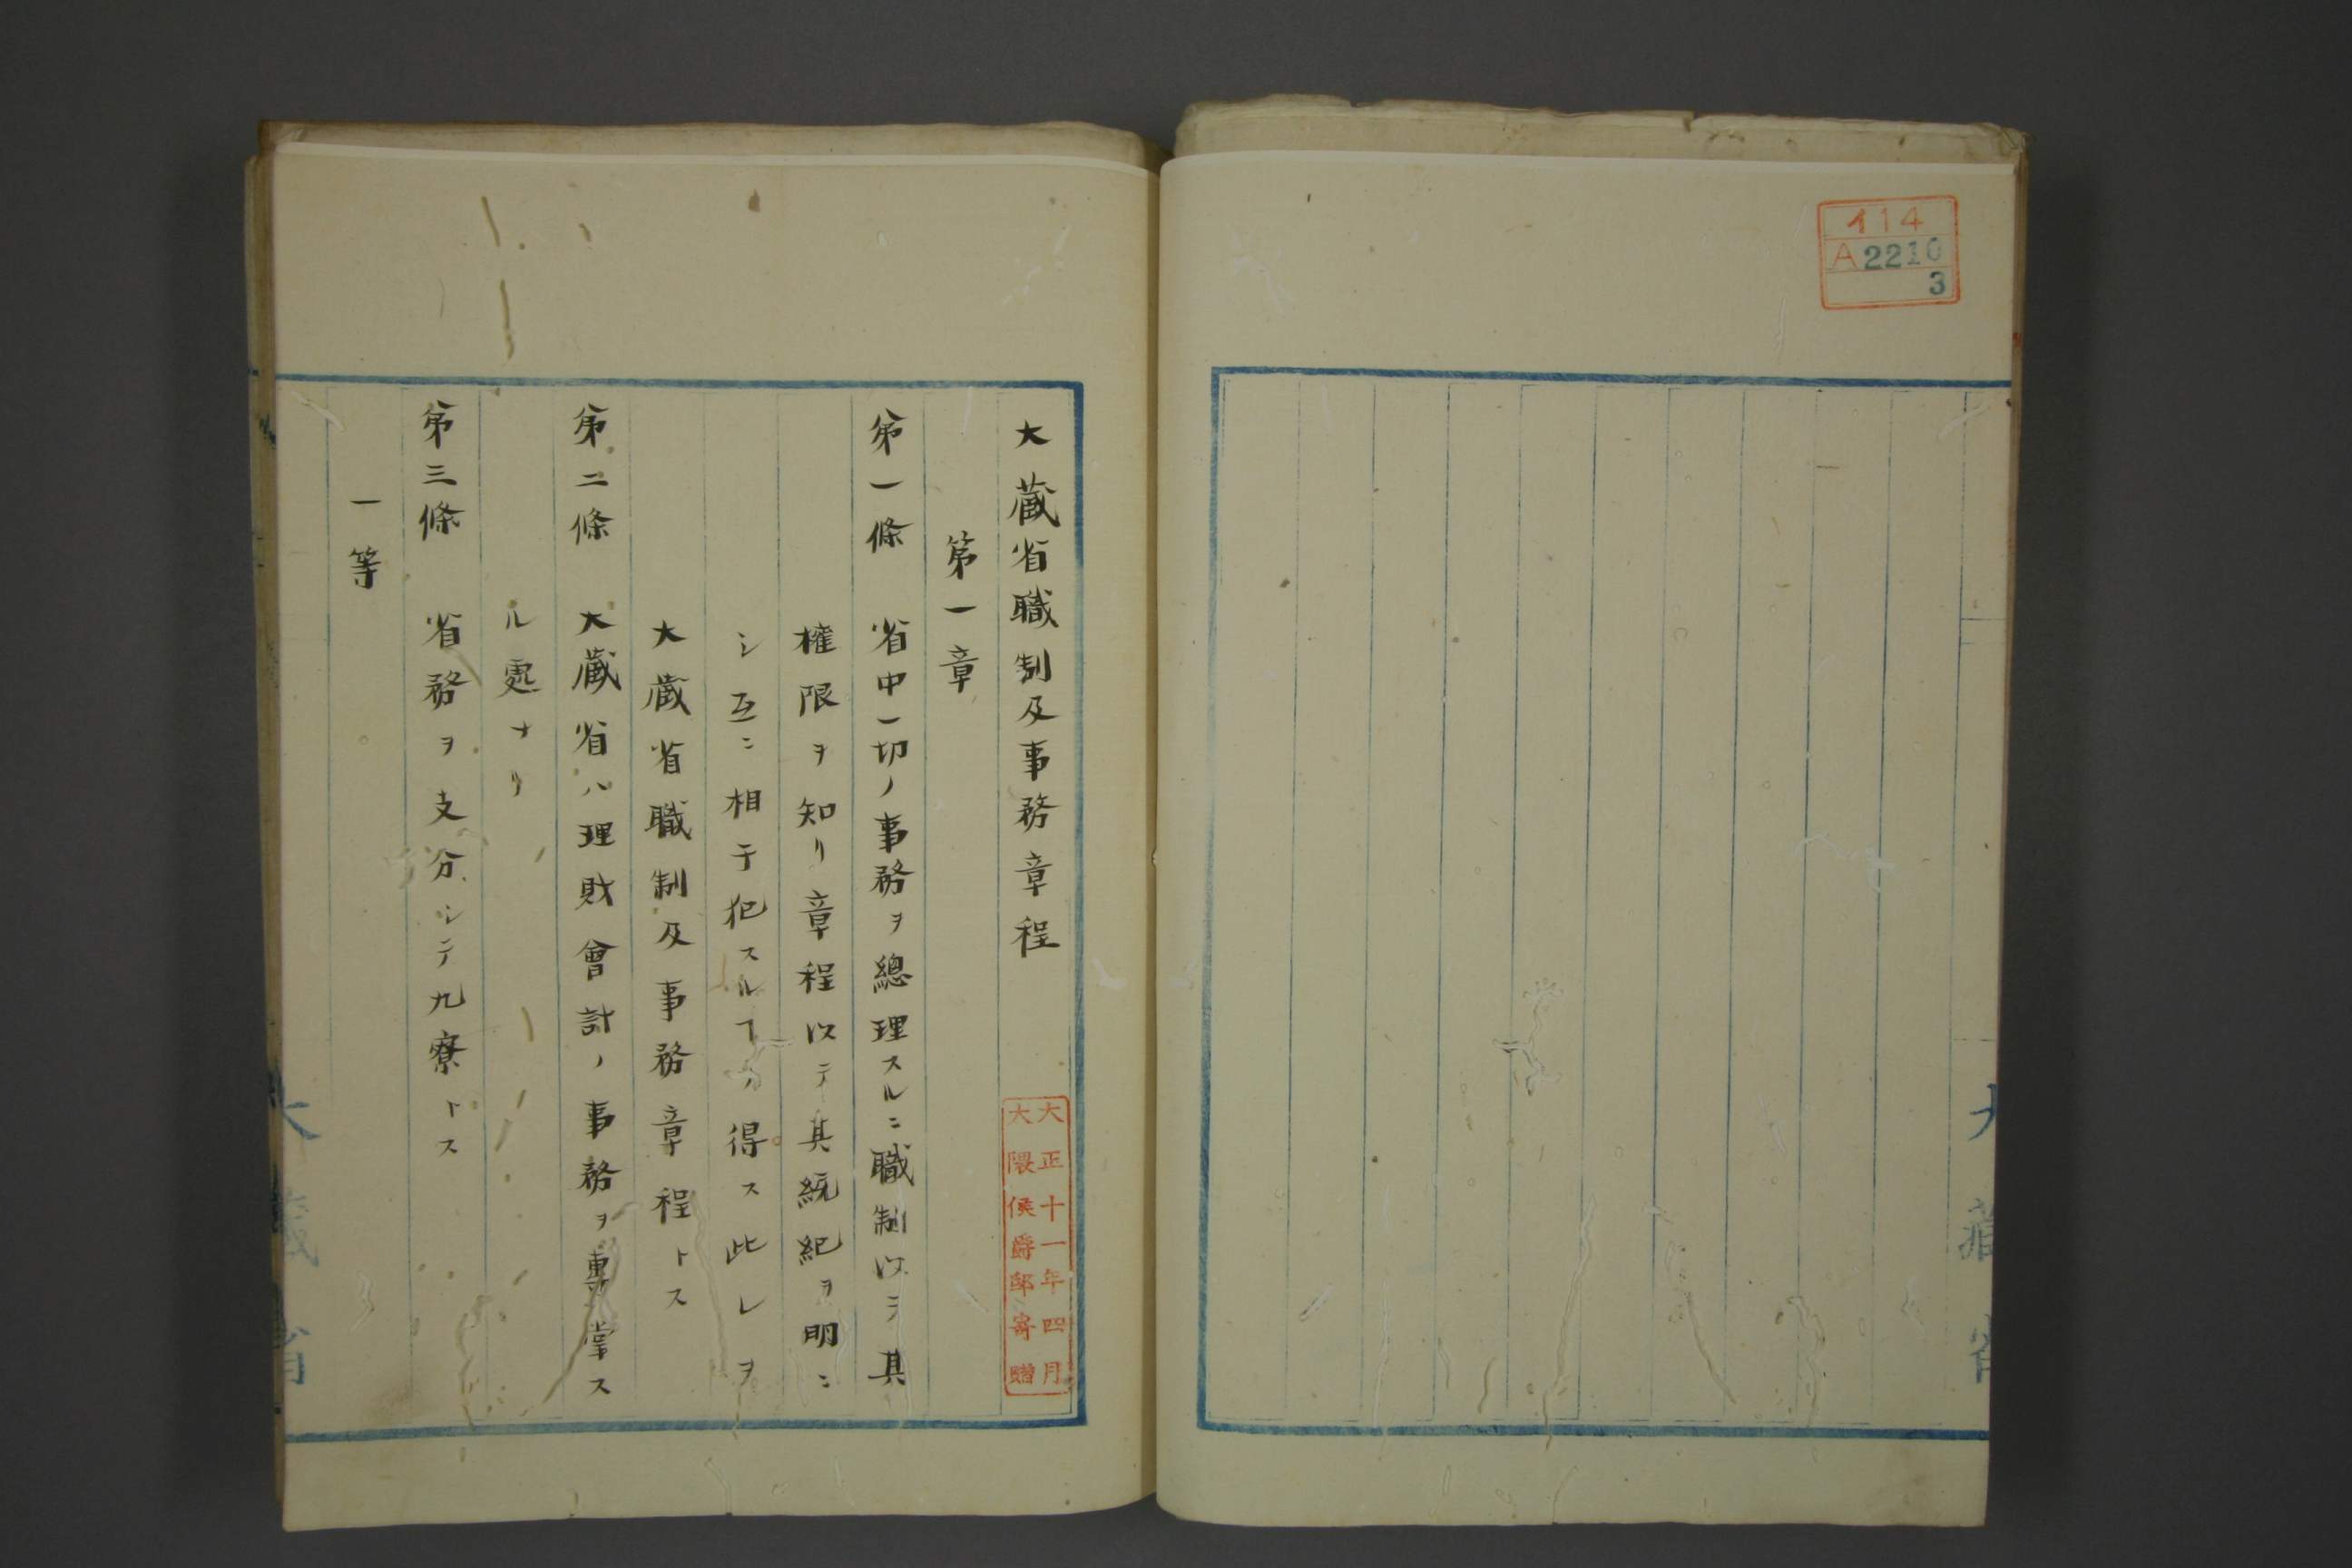 イ14
A2210
3
大藏省
大藏省職制及事務章程
大正十一年四月
大隈侯爵邸寄贈
第一章
第一條 省中一切ノ事務ヲ總理スルニ職制以テ其
權限ヲ知リ章程以テ其統紀ヲ明ニ
シ互ニ相干犯スルヿヲ得ス此レヲ
大藏省職制及事務章程トス
第二條 大藏省ハ理財會計ノ事務ヲ專掌ス
ル處ナリ
第三條 省務ヲ支分シテ九寮トス
一等
大藏省